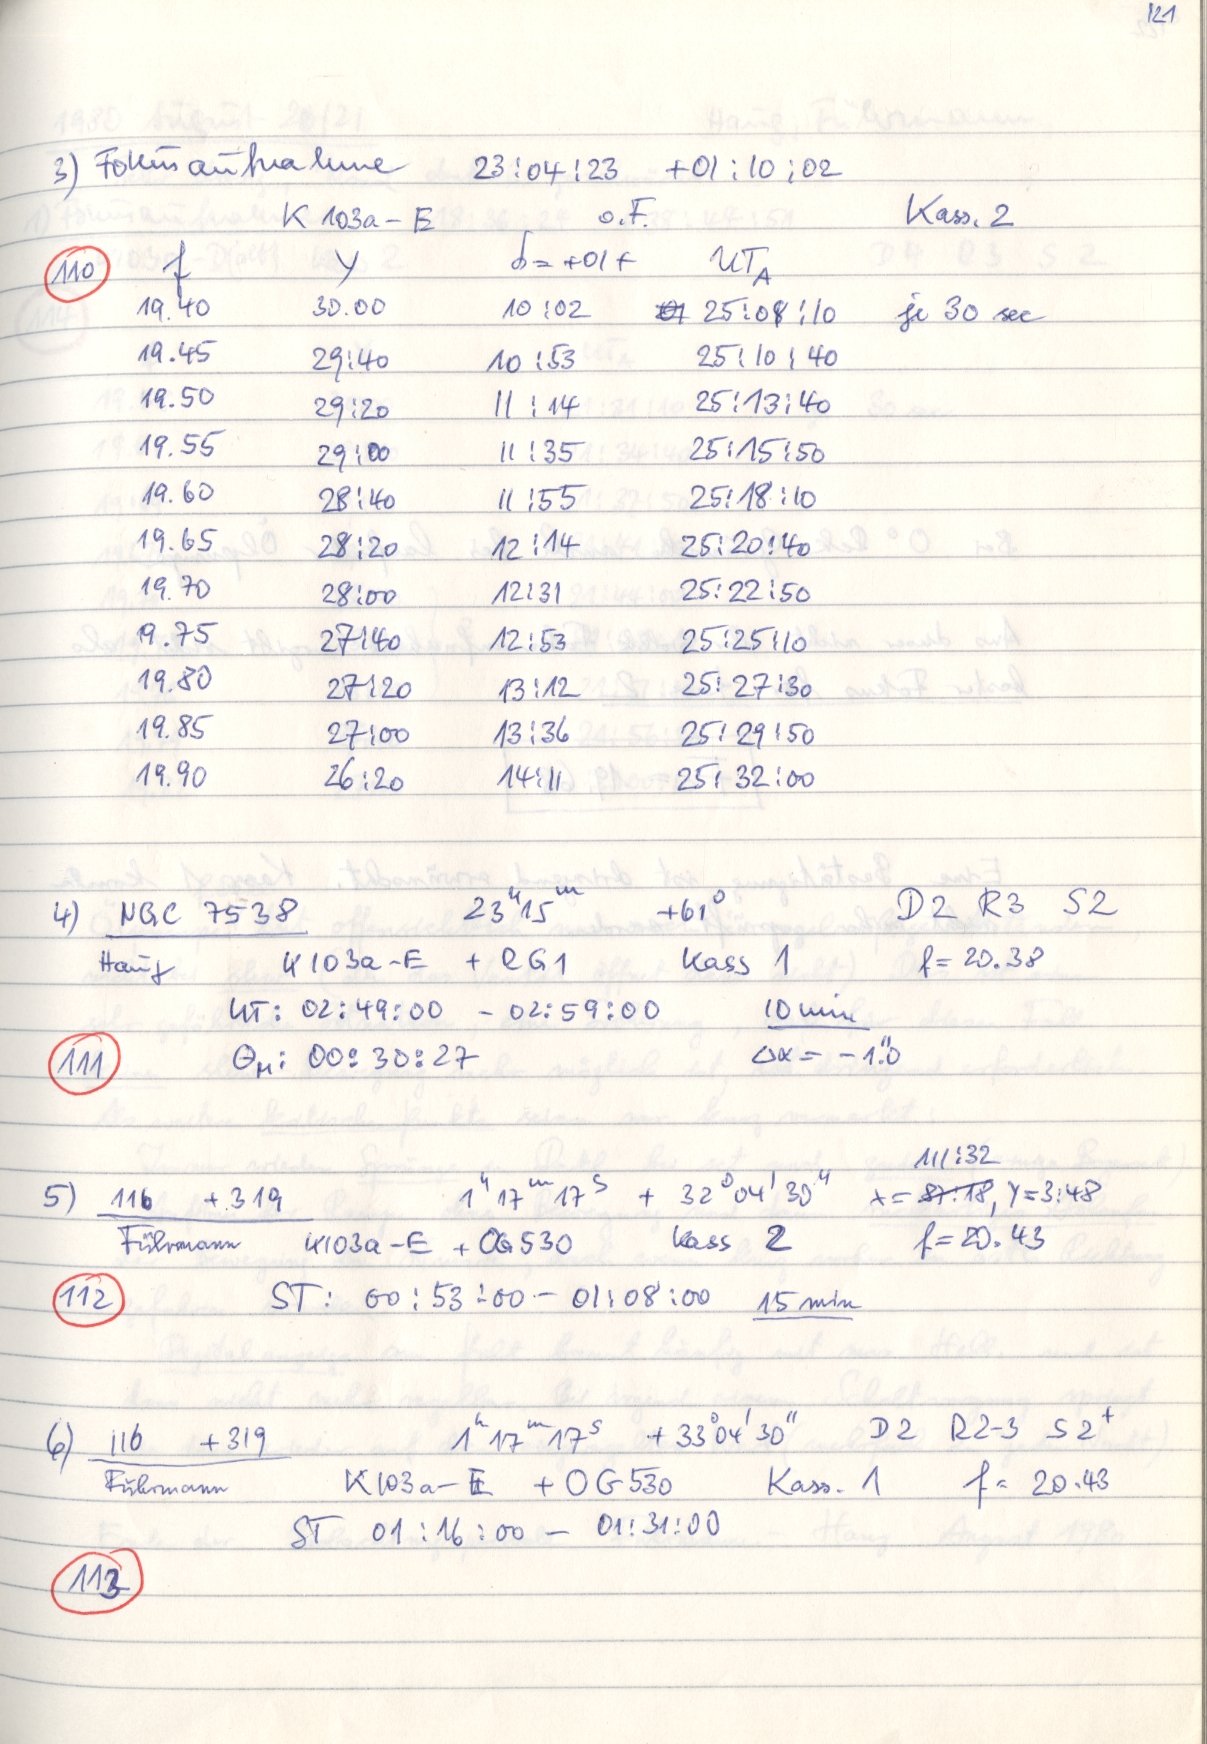 121
3) Fokusaufnahme 23:04:23 +01:10:02
K 103a-E o.F. Kass. 2
110 f y δ=+01+ UT_A
19.40 30.00 10:02 25:08:10 je 30 sec
19.45 29:40 10:53 25:10:40
19.50 29:20 11:14 25:13:40
19.55 29:00 11:35 25:15:50
19.60 28:40 11:55 25:18:10
19.65 28:20 12:14 25:20:40
19.70 28:00 12:31 25:22:50
9.75 27:40 12:53 25:25:10
19.80 27:20 13:12 25:27:30
19.85 27:00 13:36 25:29:50
19.90 26:20 14:11 25:32:00
4) NGC 7538 23ʰ15ᵐ +61° D2 R3 S2
Haug K103a-E + RG1 Kass 1 f=20.38
UT: 02:49:00 - 02:59:00 10 min
111 Θ_M: 00:30:27 Δα = -1."0
111:32
5) 116 +319 1ʰ17ᵐ17ˢ + 32°04'30" x=87.18, y=3:48
Führmann K103a-E + OG530 Kass 2 f=20.43
112 ST: 00:53:00 - 01:08:00 15 min
6) 116 +319 1ʰ17ᵐ17ˢ +33°04'30" D2 R2-3 S2⁺
Führmann K103a-E + OG530 Kass. 1 f= 20.43
ST 01:16:00 - 01:31:00
113